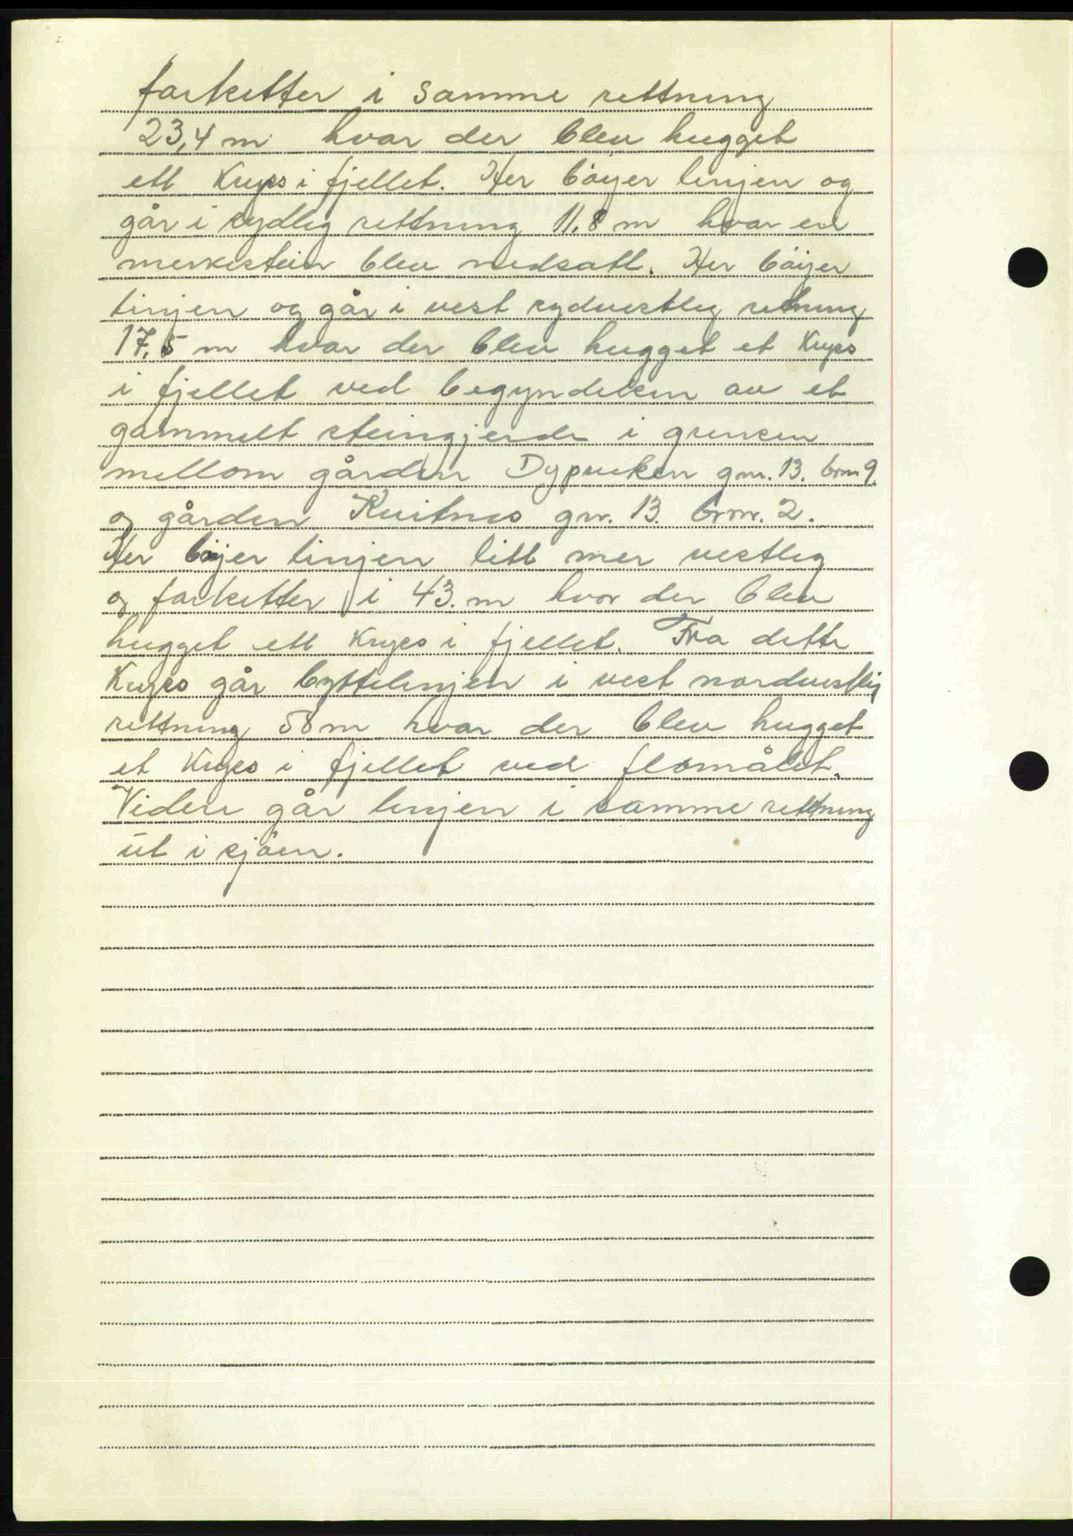 fortsetter i samme rettning
23,4 m hvor der blev hugget
ett Kryss i fjellet. Her böyer linjen og
går i sydlig rettning 11.8 m hvor en
merkestein blev nedsatt. Her böyer
linjen og går i vest sydvestlig retning
17,5 m hvor der blev hugget et Kryss
i fjellet ved begyndelsen av et
gammelt steingjerde i grensen
mellom gården Dypviken gnr. 13. brnr 9.
og gården Kvitnes gnr. 13. brnr. 2.
Her böyer linjen litt mer vestlig
og fortsetter i 43. m hvor der blev
hugget ett Kryss i fjellet. Fra dette
Kryss går byttelinjen i vest nordvestlig
rettning 58 m hvor der blev hugget
et Kryss i fjellet ved flomålet.
Videre går linjen i samme rettning
ut i sjöen.